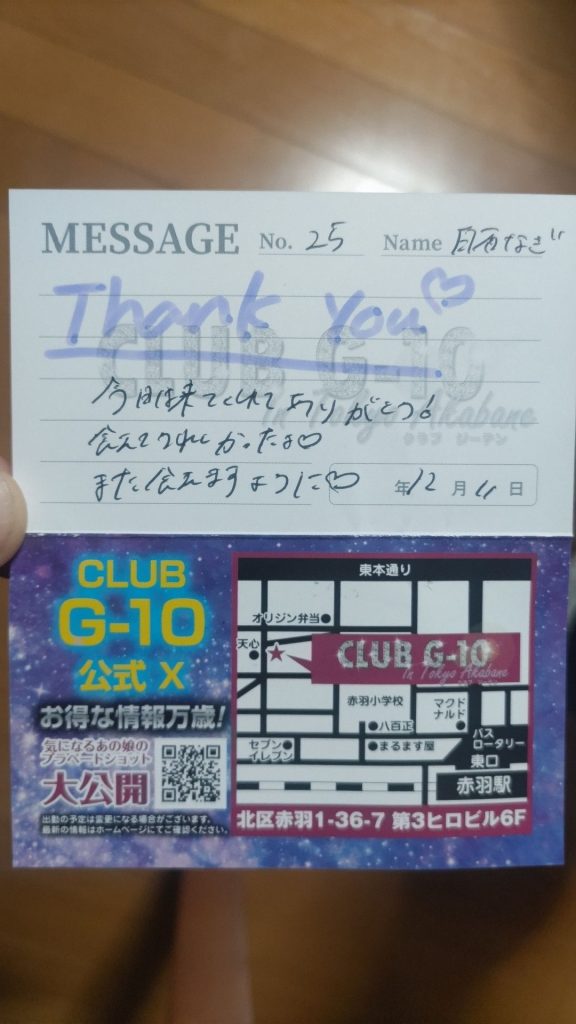 MESSAGE No. 25 Name 白石なぎ
Thank You♡
CLUB G-10
In Tokyo Akabane
クラブ ジーテン
今日は来てくれてありがとう!
会えてうれしかったよ♡
また会えますように♡
年 12 月 11 日
CLUB
G-10
公式 X
お得な情報万歳!
気になるあの娘の
プラベートショット
大公開
出勤の予定は変更になる場合がございます。
最新の情報はホームページにてご確認ください。
東本通り
オリジン弁当●
天心
CLUB G-10
In Tokyo Akabane
赤羽小学校
マクド
ナルド
●八百正
セブン●
イレブン
●まるます屋
バス
ロータリー
東口
赤羽駅
北区赤羽1-36-7 第3ヒロビル6F